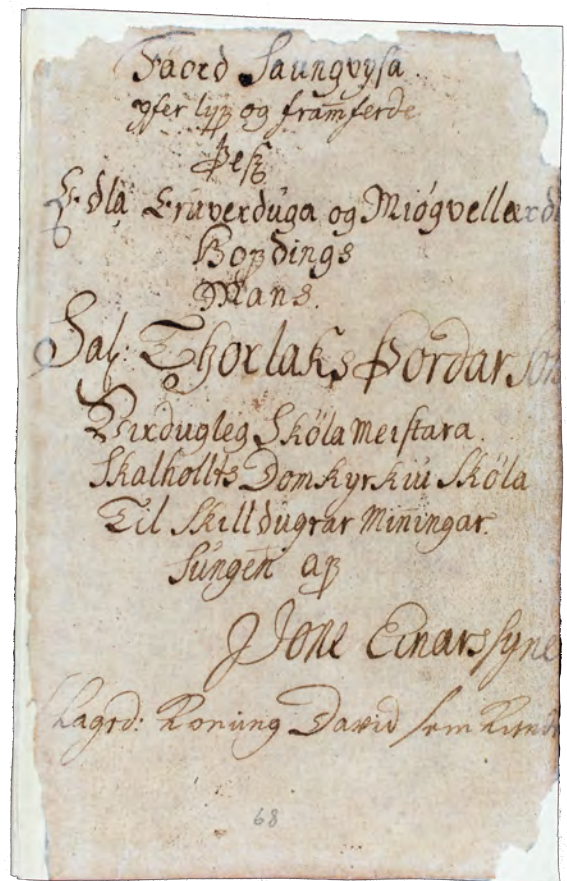 Fäord Saungvysa
yfer lijf og framferde
Þess
Edla Eruverduga og Miógvellærd
Hofdings
Mans.
Sal: Thorlaks Þordarson
Virdugleg Sköla meistara.
Skalhollts Domkyrkiu Sköla
Til Skilldugrar Miñingar
Sungen af
Jone Einarssyne
Lagrd: Konung David sem Kende
68